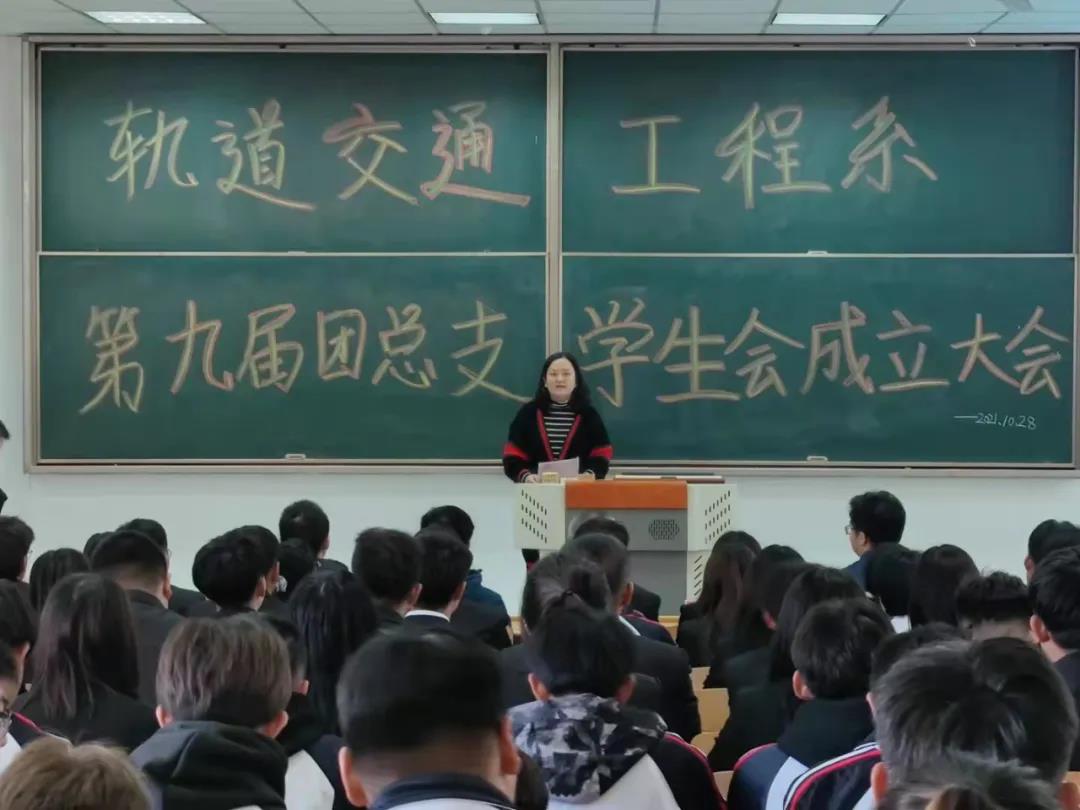 轨道交通 工程系
第九届团总支 学生会成立大会
—2021.10.28